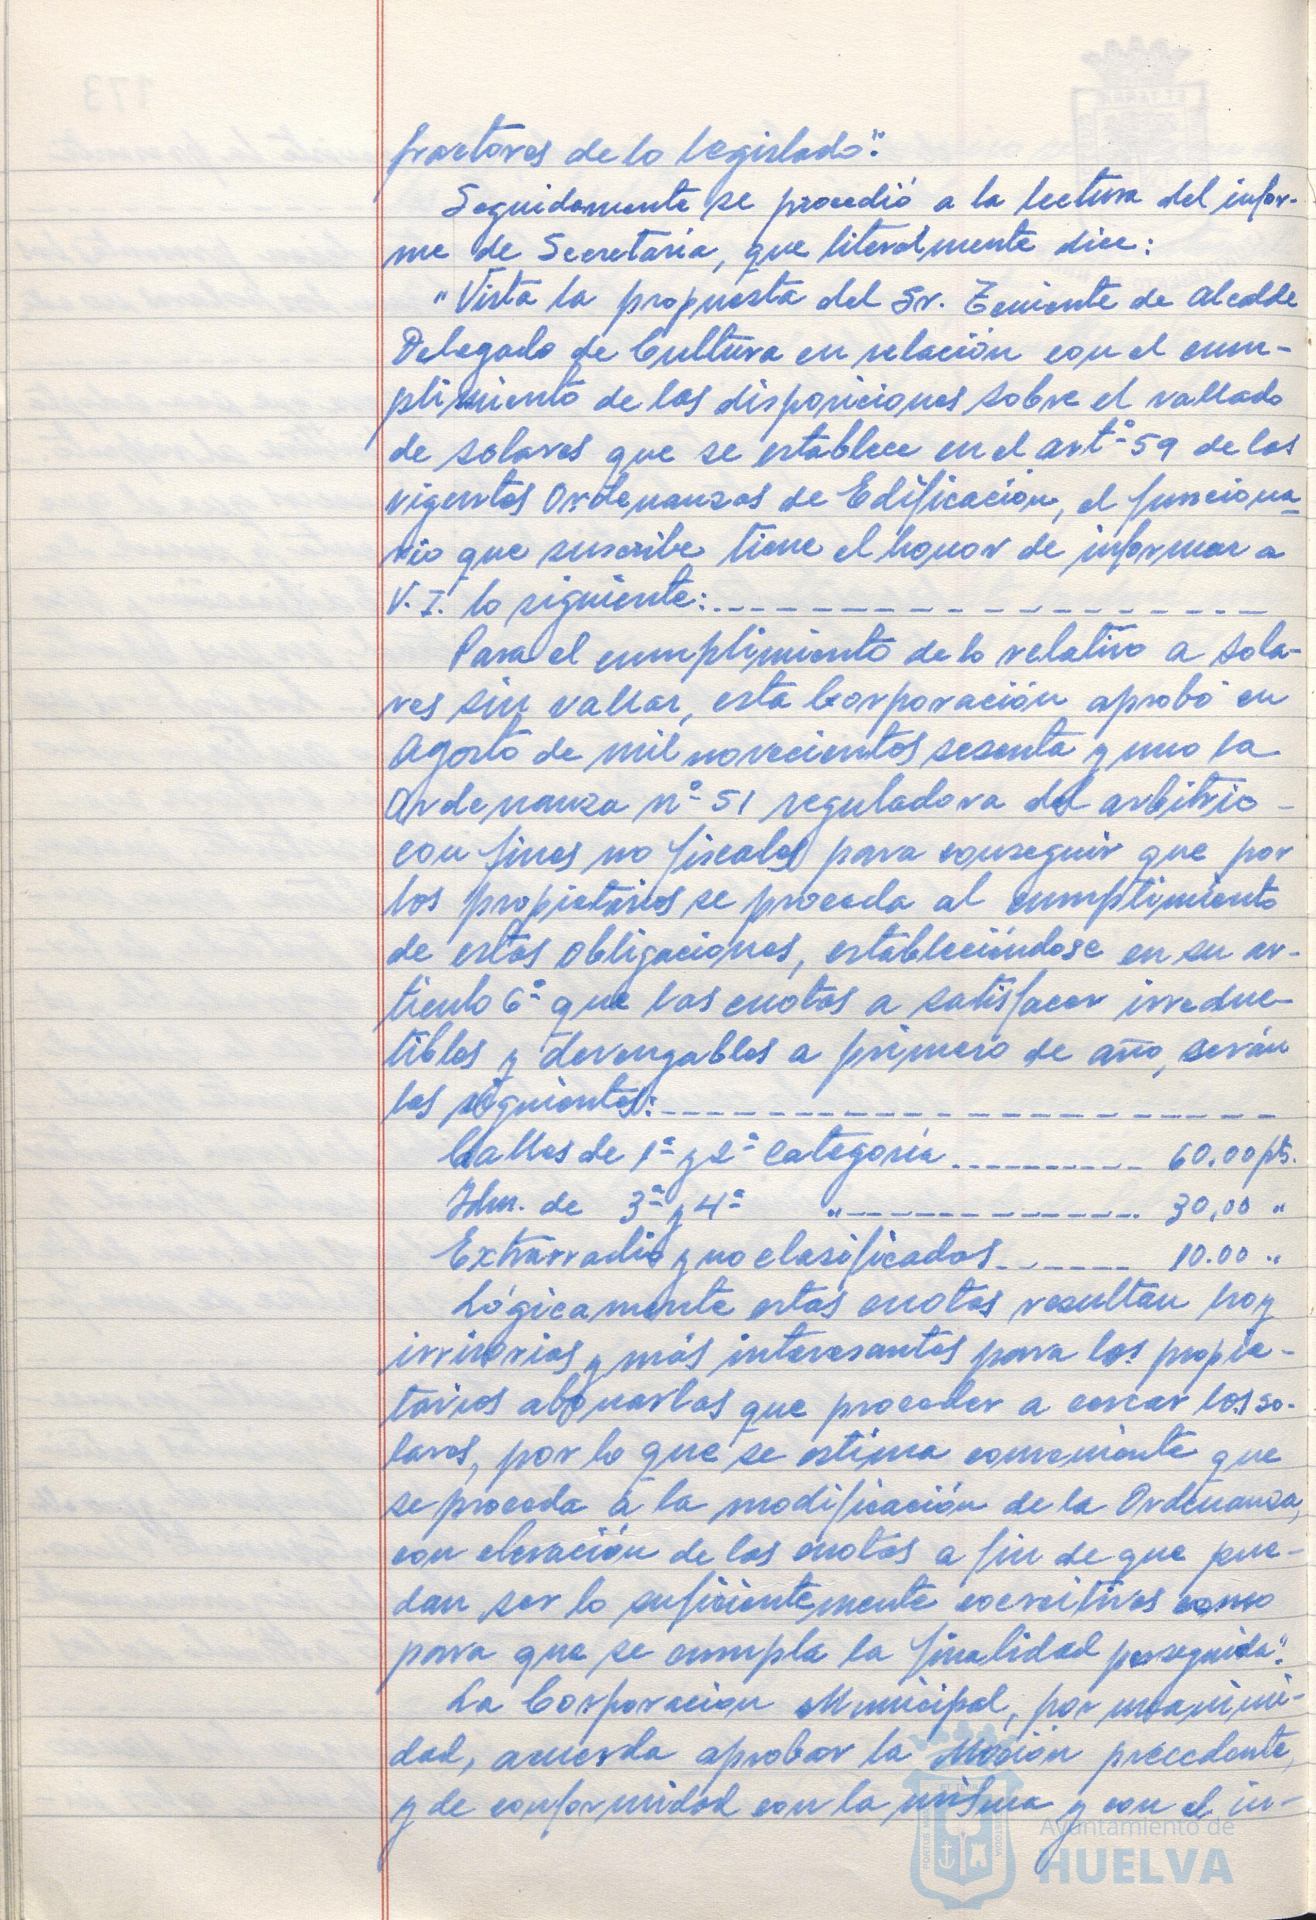 fractores de lo legislado".
Seguidamente se procedió a la lectura del infor-
me de Secretaría, que literalmente dice:
"Vista la propuesta del Sr. Teniente de Alcalde
Delegado de Cultura en relación con el cum-
plimiento de las disposiciones sobre el vallado
de solares que se establece en el artº 59 de las
vigentes Ordenanzas de Edificación, el funciona-
rio que suscribe tiene el honor de informar a
V. I. lo siguiente:
Para el cumplimiento de lo relativo a sola-
res sin vallar, esta Corporación aprobó en
Agosto de mil novecientos sesenta y uno la
Ordenanza nº 51 reguladora del arbitrio -
con fines no fiscales para conseguir que por
los propietarios se proceda al cumplimiento
de estas obligaciones, estableciéndose en su ar-
tículo 6º que las cuotas a satisfacer irreduc-
tibles y devengables a primero de año, serán
las siguientes:
Calles de 1ª y 2ª categoría 60.00 pts.
Idm. de 3ª y 4ª " 30,00 "
Extrarradio y no clasificadas 10.00 "
Lógicamente estas cuotas resultan hoy
irrisorias y más interesantes para los propie-
tarios abonarlas que proceder a cercar los so-
lares, por lo que se estima conveniente que
se proceda a la modificación de la Ordenanza,
con elevación de las cuotas a fin de que pue-
dan ser lo suficientemente coercitivas como
para que se cumpla la finalidad perseguida".
La Corporación Municipal, por unanimi-
dad, acuerda aprobar la Moción precedente,
y de conformidad con la misma y con el in-
Ayuntamiento de
HUELVA